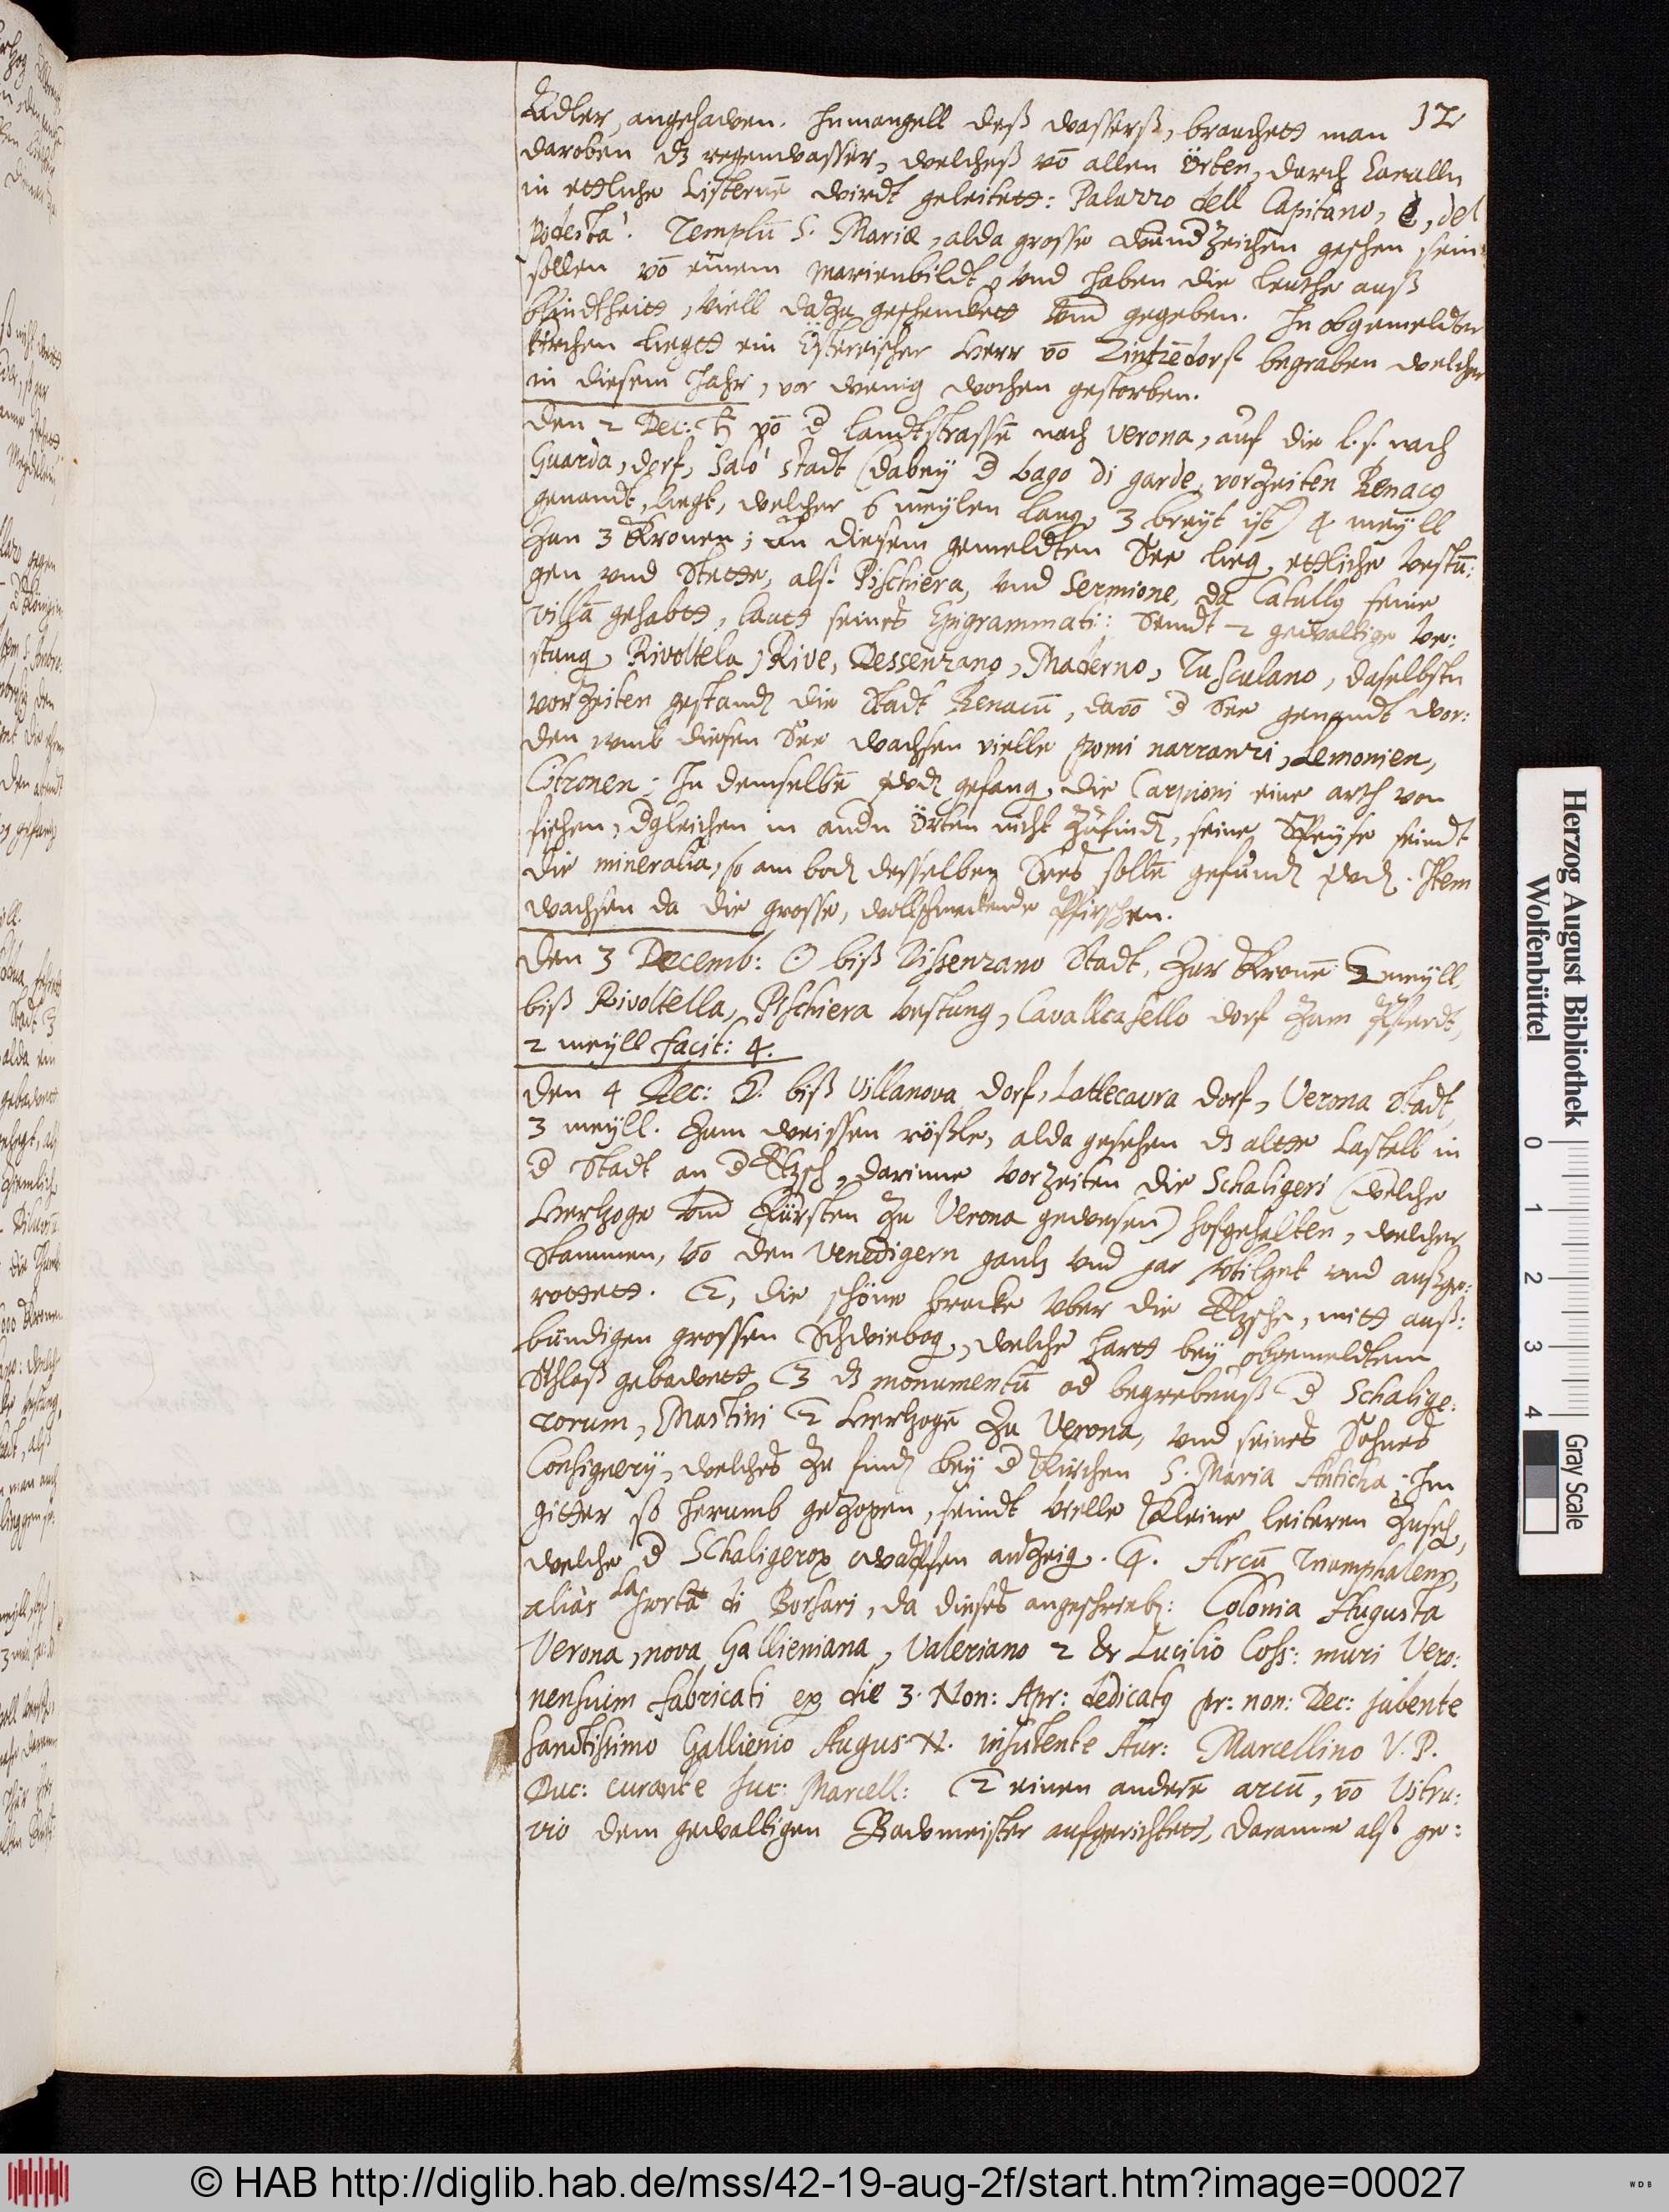 12
Adler, angehawen. In mangell deß wasserß, brauchett man
daroben dz regenwasser, welcheß võ allen Örten, durch Canalln
in ettliche Cisternẽ wirdt geleitett: Palazzo dell Capitano, è, del
Podestà. Templũ S. Mariæ, alda grosse wundzeichen geschen sein
sollen võ einem Marienbildt, vnd haben die leuthe auß
blindtheitt, viell dahzu geschenckett vnd gegeben. In obgemeldter
kirchen liegtt ein Österrischer Herr võ Zintzẽdorf begraben welcher
in diesem Jahr, vor wenig wochen gestorben.
Den 2 Dec: ♄ võ d landtstrassẽ nach Verona, auf die l.s. nach
Guarda, dorf, Salò Stadt (dabey d Lago di garde, vorzeiten Benacg
genandt, liegt, welcher 6 meylen lang, 3 breyt ist) 4 meyll
Zun 3 Kronen; an diesem gemeldten See lieg, ettliche Vestũ:
gen vnd Stette, als Pischiera, vnd Sermione, da Catullg seine
villã gehabtt, lautt seines Epigrammati: Seindt 2 gewaltige Ve:
stung, Rivoltela, Rive, Dessenzano, Maderno, Tusculano, daselbstn
vorzeiten gestandn die Stadt Benacũ, davõ d See genandt wor:
den vmb diesen See wachsen vielle pomi narranzi, Lemonien,
Citronen; In demselbẽ wdn gefang, die Carpioni eine arth von
fischen, dgleichen in andn Örten nicht zufindn, seine Speyse seindt
die mineralia, so am bodn desselben Sees sollẽ gefundn wdn. Item
wachsen da die grosse, wollschmeckende Pfirschen.
Den 3 Decemb: ☉ biß Dissenzano Stadt, Zur Kronẽ 2 meyll,
biß Rivoltella, Pischiera Vestung, Cavallcasello dorf Zum Pferdt,
2 meyll facit: 4.
Den 4 Dec: ☽. biß Villanova dorf, Lattecaura dorf, Verona Stadt,
3 meyll. Zum weissen rößle, alda gesehen dz altte Castell in
d Stadt an d Etzsch, darinne vorzeiten die Schaligeri (welche
Hertzoge vnd Fürsten zu Verona gewesen) hofgehalten, welcher
Stammen, võ den Venedigern gantz vnd gar vtilget vnd außge:
rottett. 2, die schöne brucke vber die Etzsche, mitt auß:
bündigen grossen Schwiebog, welche hartt bey obgemeldtem
Schloß gebawett 3 dz monumentũ od begrebnuß d Schalige:
rorum, Mastini 2 Hertzogẽ zu Verona, vnd seines Sohnes
Consignery, welches zu findn bey d Kirchen S. Maria Anticha; Im
gitter so herumb gezogen, seindt vielle Kleine leiteren zusehn,
welche d Schaligerox wapffen anzeig. 4. Arcũ Triumphalem,
aliàs La porta di Borsari, da dieses angeschriebn: Colonia Augusta
Verona, nova Gallieniana, Valeriano 2 & Lucilio Coss: muri Vero:
nensium fabricati ex die 3. Non: Apr: dedicatg pr: non: Dec: jubente
sanctissimo Gallienio Augus: N. insistente Aur: Marcellino V. P.
Duc: curante Juc: Marcell: 2 einen anderẽ arcũ, võ Vitru:
vio dem gewaltigen Bawmeister aufgerichtett, daranne alß ge:
Herzog August Bibliothek
Wolfenbüttel
0 1 2 3 4
Gray Scale
© HAB http://diglib.hab.de/mss/42-19-aug-2f/start.htm?image=00027
WDB